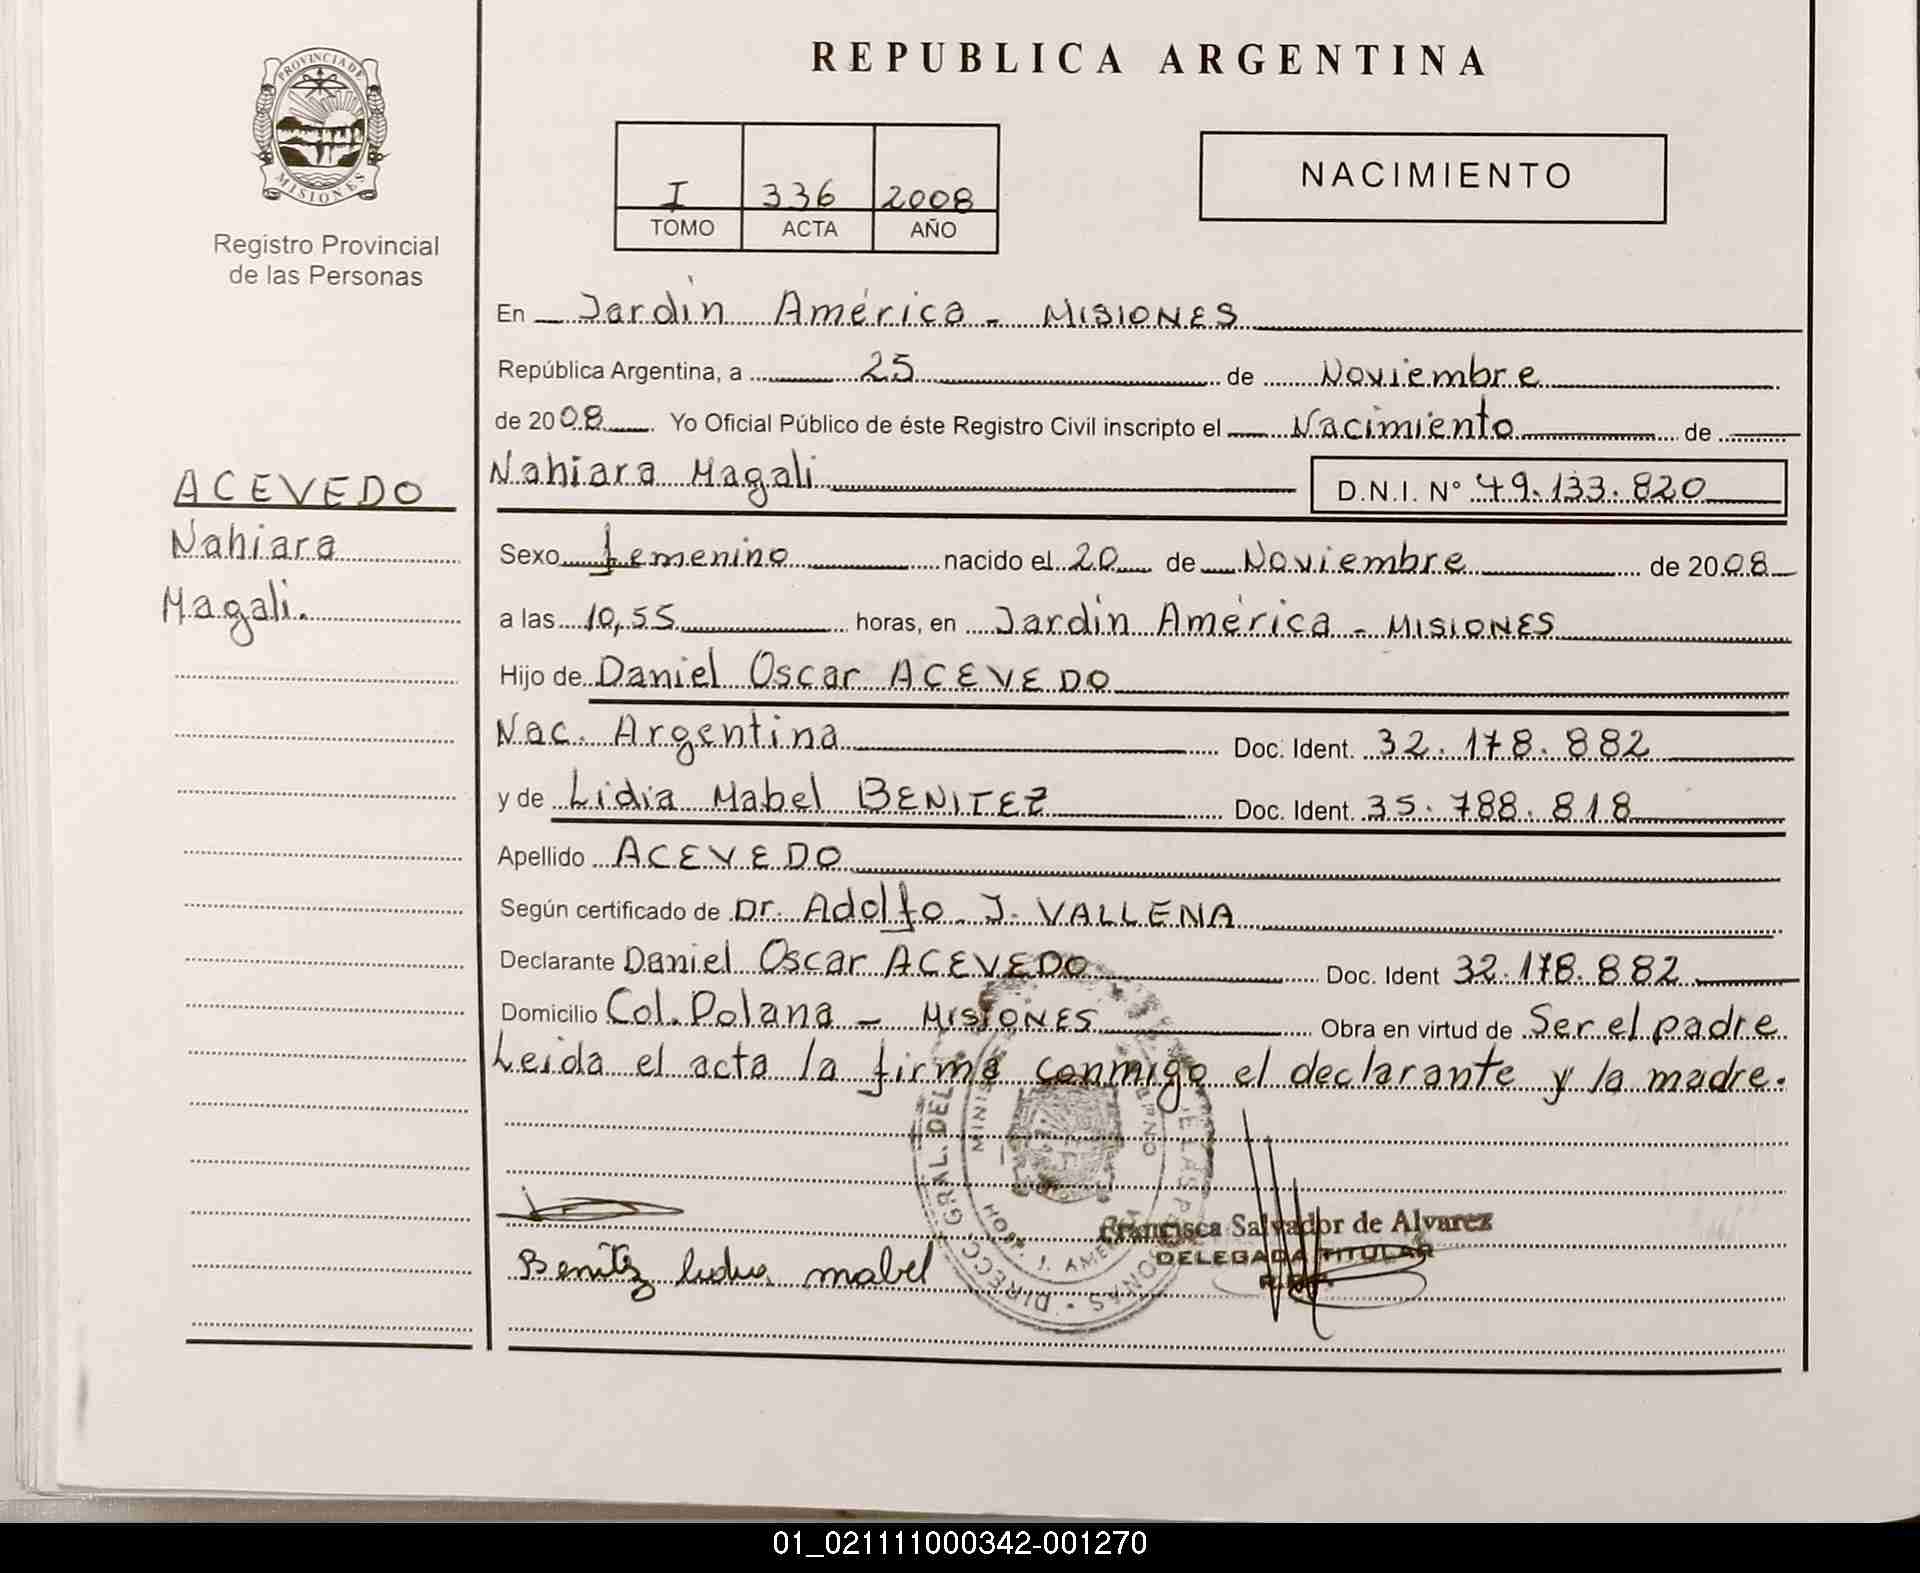 PROVINCIA DE
MISIONES
Registro Provincial
de las Personas
ACEVEDO
Nahiara
Magali.
REPUBLICA ARGENTINA
I 336 2008
TOMO ACTA AÑO
NACIMIENTO
En Jardín América - MISIONES
República Argentina, a 25 de Noviembre
de 2008. Yo Oficial Público de éste Registro Civil inscripto el Nacimiento de
Nahiara Magali D.N.I. N° 49.133.820
Sexo femenino nacido el 20 de Noviembre de 2008
a las 10,55 horas, en Jardín América - MISIONES
Hijo de Daniel Oscar ACEVEDO
Nac. Argentina Doc. Ident. 32.178.882
y de Lidia Mabel BENITEZ Doc. Ident. 35.788.818
Apellido ACEVEDO
Según certificado de Dr. Adolfo J. VALLENA
Declarante Daniel Oscar ACEVEDO Doc. Ident 32.178.882
Domicilio Col. Polana - MISIONES Obra en virtud de Ser el padre
Leida el acta la firma conmigo el declarante y la madre.
DIRECC. GRAL. DEL
HOSP. J. AMERICA
Francisca Salvador de Alvarez
DELEGADA TITULAR
Benitez lidia mabel
01_021111000342-001270